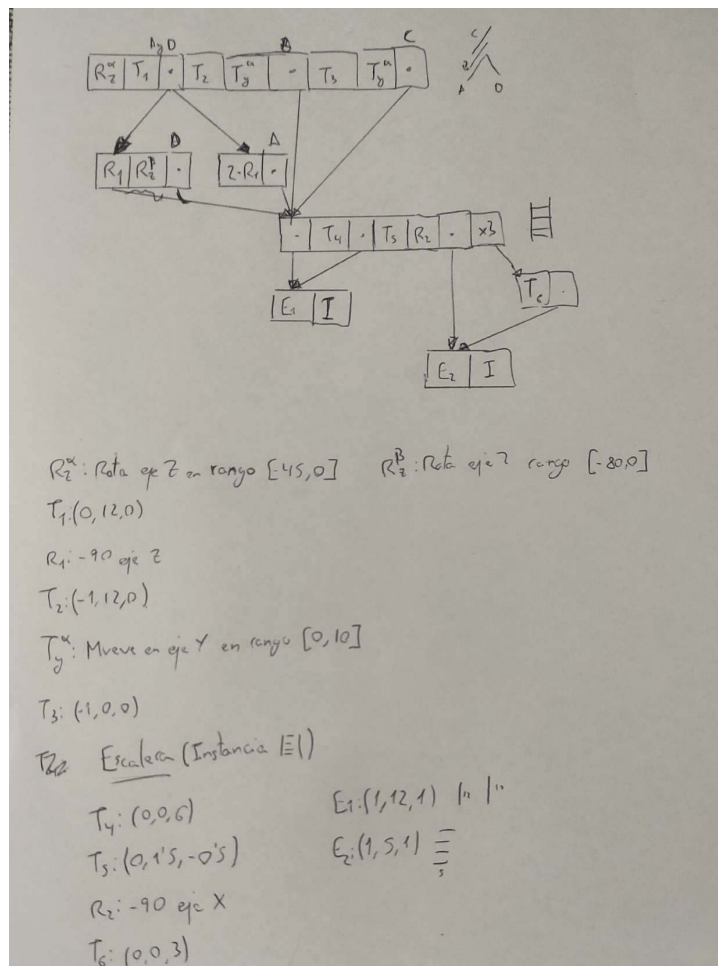 A y D B C
R_z^α | T_1 | · | T_2 | T_y^α | · | T_3 | T_y^α | ·
C
B
A D
D A
R_1 | R_z^β | ·
2·R_1 | ·
· | T_4 | · | T_5 | R_2 | · | x3
E_1 | I
T_6 | ·
E_2 | I
R_z^α: Rota eje Z en rango [-45,0] R_z^β: Rota eje Z rango [-80,0]
T_1:(0,12,0)
R_1: -90 eje Z
T_2:(-1,12,0)
T_y^α: Mueve en eje Y en rango [0,10]
T_3: (-1,0,0)
Escalera (Instancia |Ξ|)
T_4: (0,0,6) E_1:(1,12,1) |12 |12
T_5: (0,1'5,-0'5) E_2:(1,5,1)
5
R_2: -90 eje X
T_6: (0,0,3)